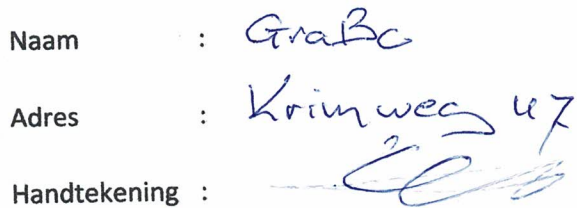 Naam : GraBc
Adres : Krimweg 47
Handtekening :